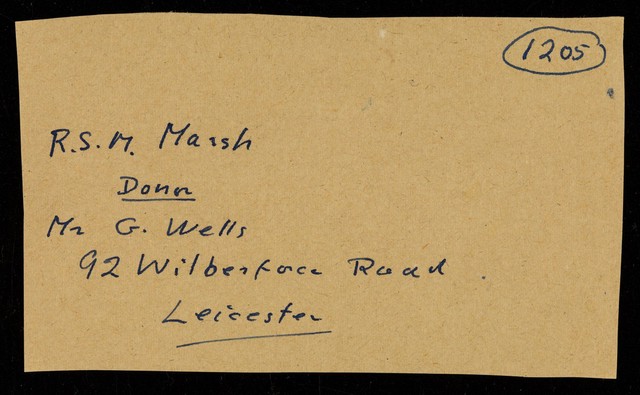 1205
R.S.M. Marsh
Donor
Mr G. Wells
92 Wilberforce Road
Leicester